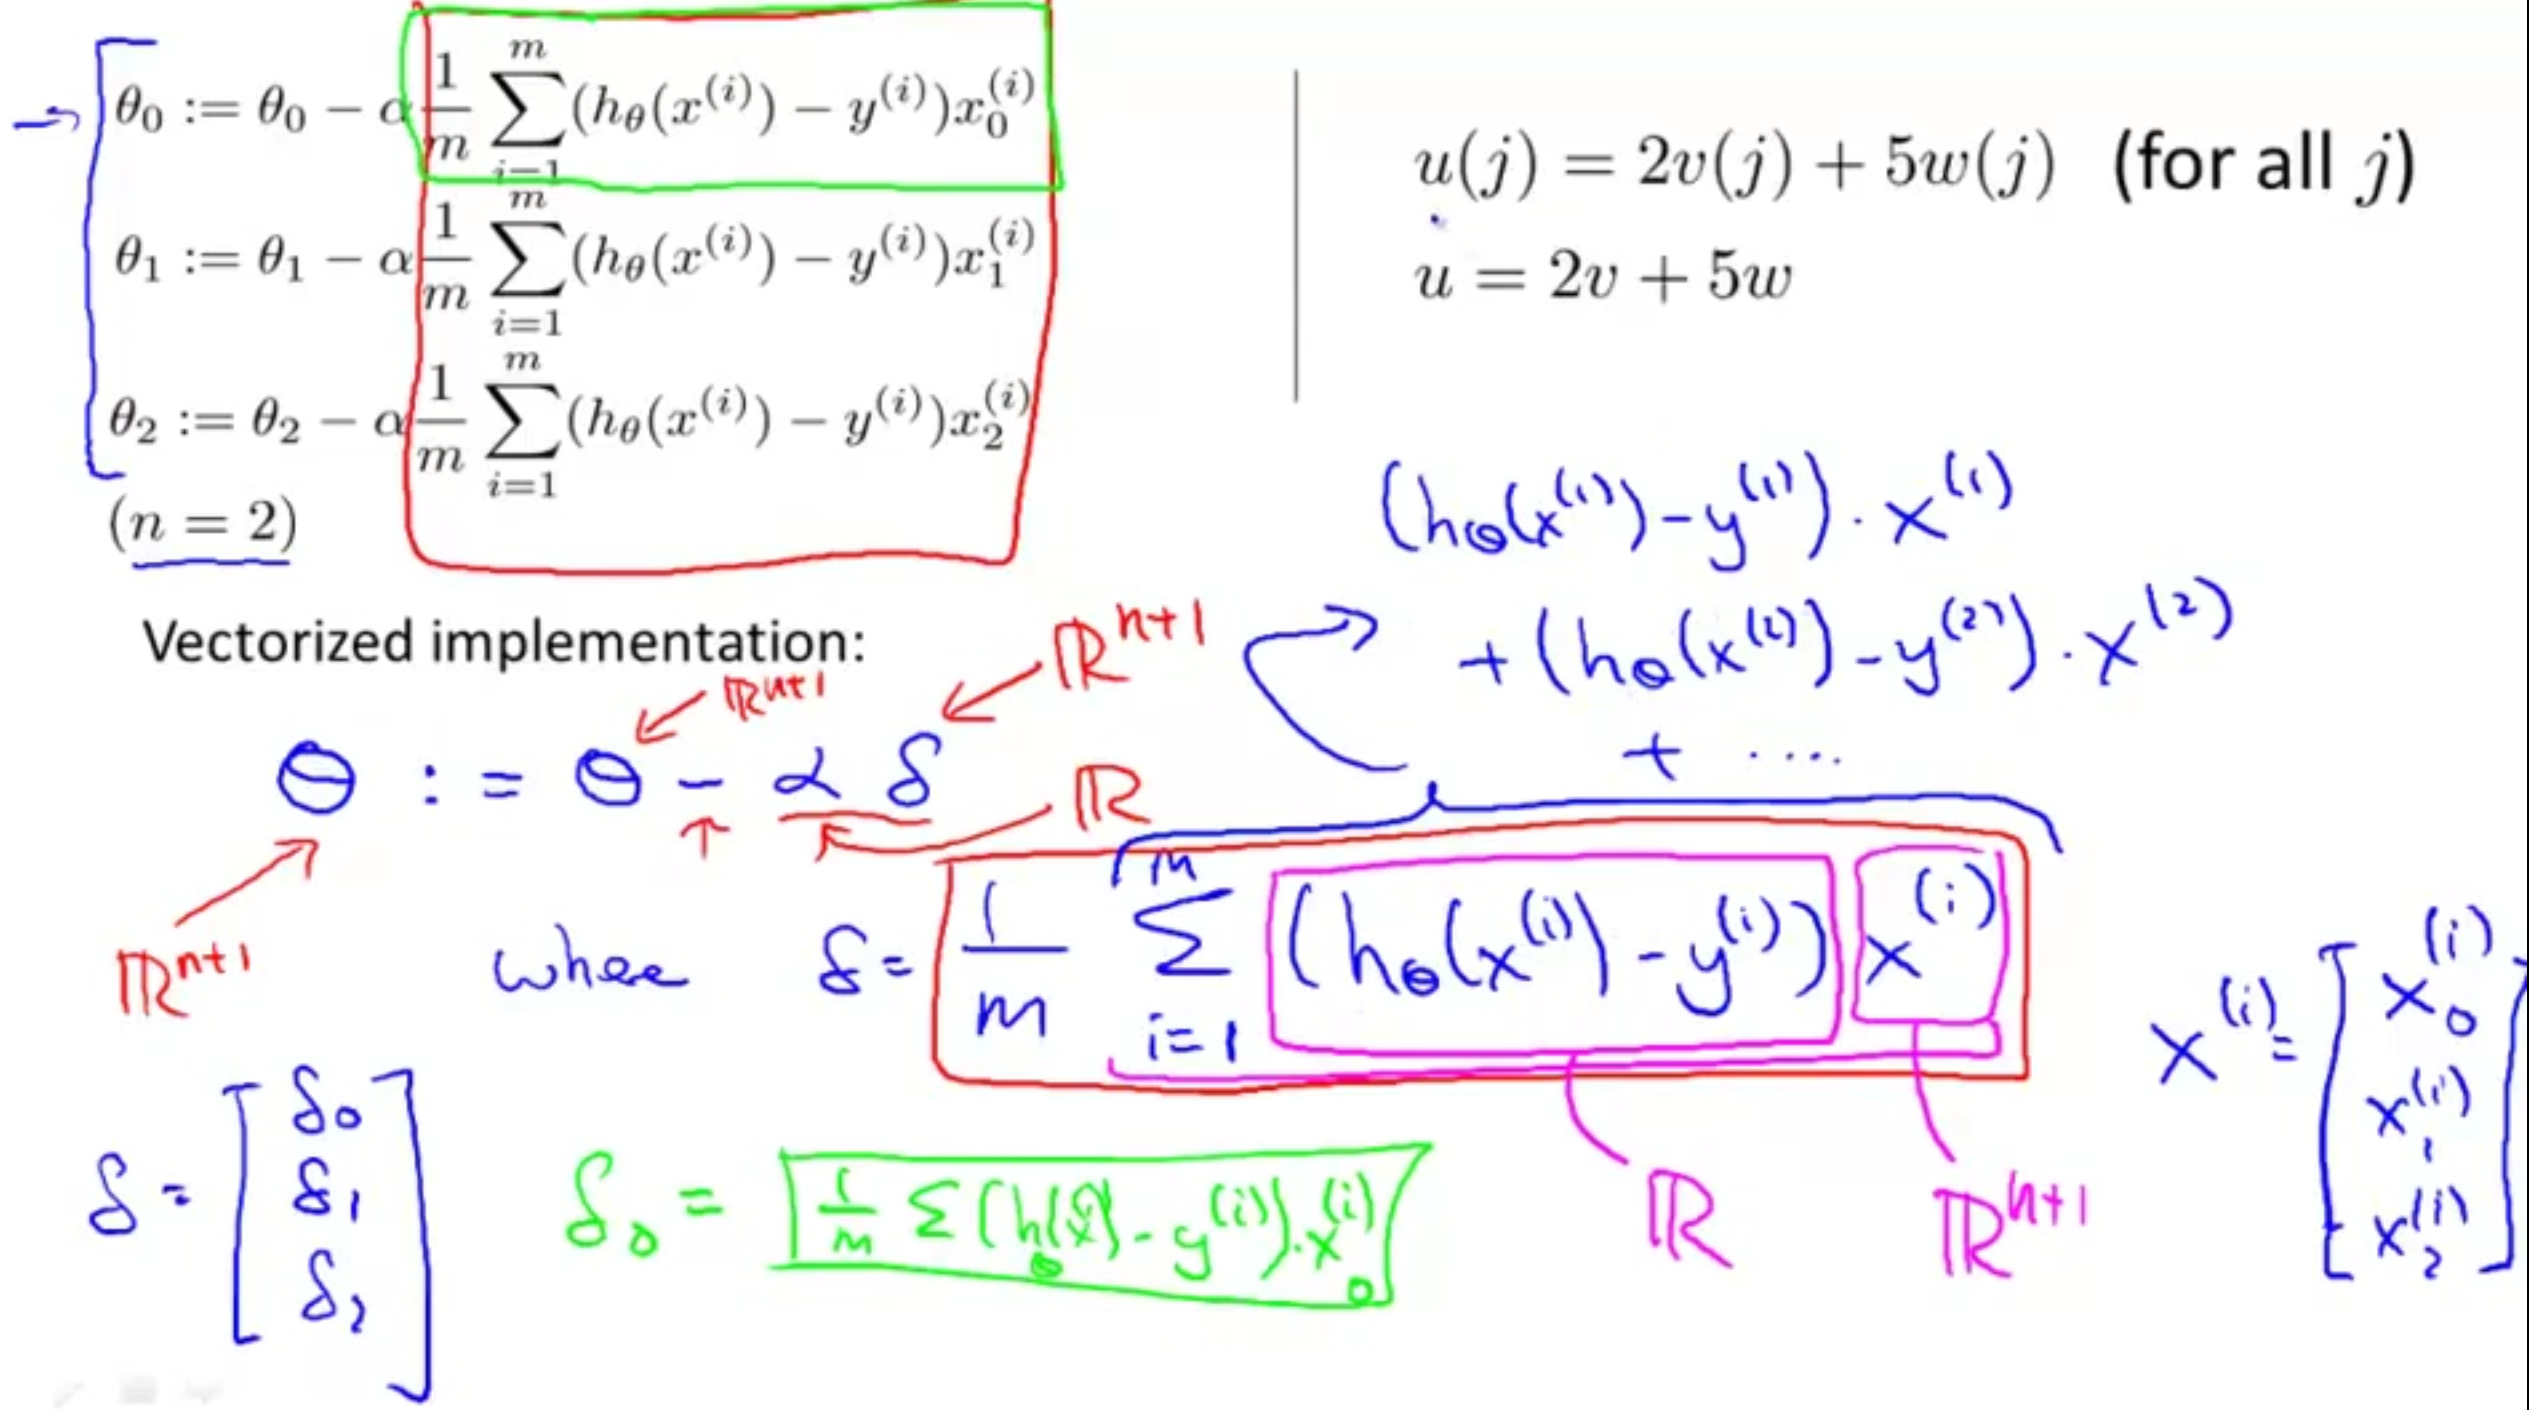 θ₀ := θ₀ − α 1/m ∑_{i=1}^{m} (h_θ(x^{(i)}) − y^{(i)})x₀^{(i)}
θ₁ := θ₁ − α 1/m ∑_{i=1}^{m} (h_θ(x^{(i)}) − y^{(i)})x₁^{(i)}
θ₂ := θ₂ − α 1/m ∑_{i=1}^{m} (h_θ(x^{(i)}) − y^{(i)})x₂^{(i)}
(n = 2)
u(j) = 2v(j) + 5w(j) (for all j)
u = 2v + 5w
(h_θ(x^{(1)}) − y^{(1)}) · x^{(1)}
+ (h_θ(x^{(2)}) − y^{(2)}) · x^{(2)}
+ ....
Vectorized implementation:
ℝ^{n+1}
ℝ^{n+1}
θ := θ − α δ
ℝ
ℝ^{n+1}
where δ = 1/m ∑_{i=1}^{m} (h_θ(x^{(i)}) − y^{(i)}) x^{(i)}
ℝ
ℝ^{n+1}
x^{(i)} = [x₀^{(i)}
x₁^{(i)}
x₂^{(i)}]
δ = [δ₀
δ₁
δ₂]
δ₀ = 1/m ∑ (h_θ(x^{(i)}) − y^{(i)}) · x₀^{(i)}